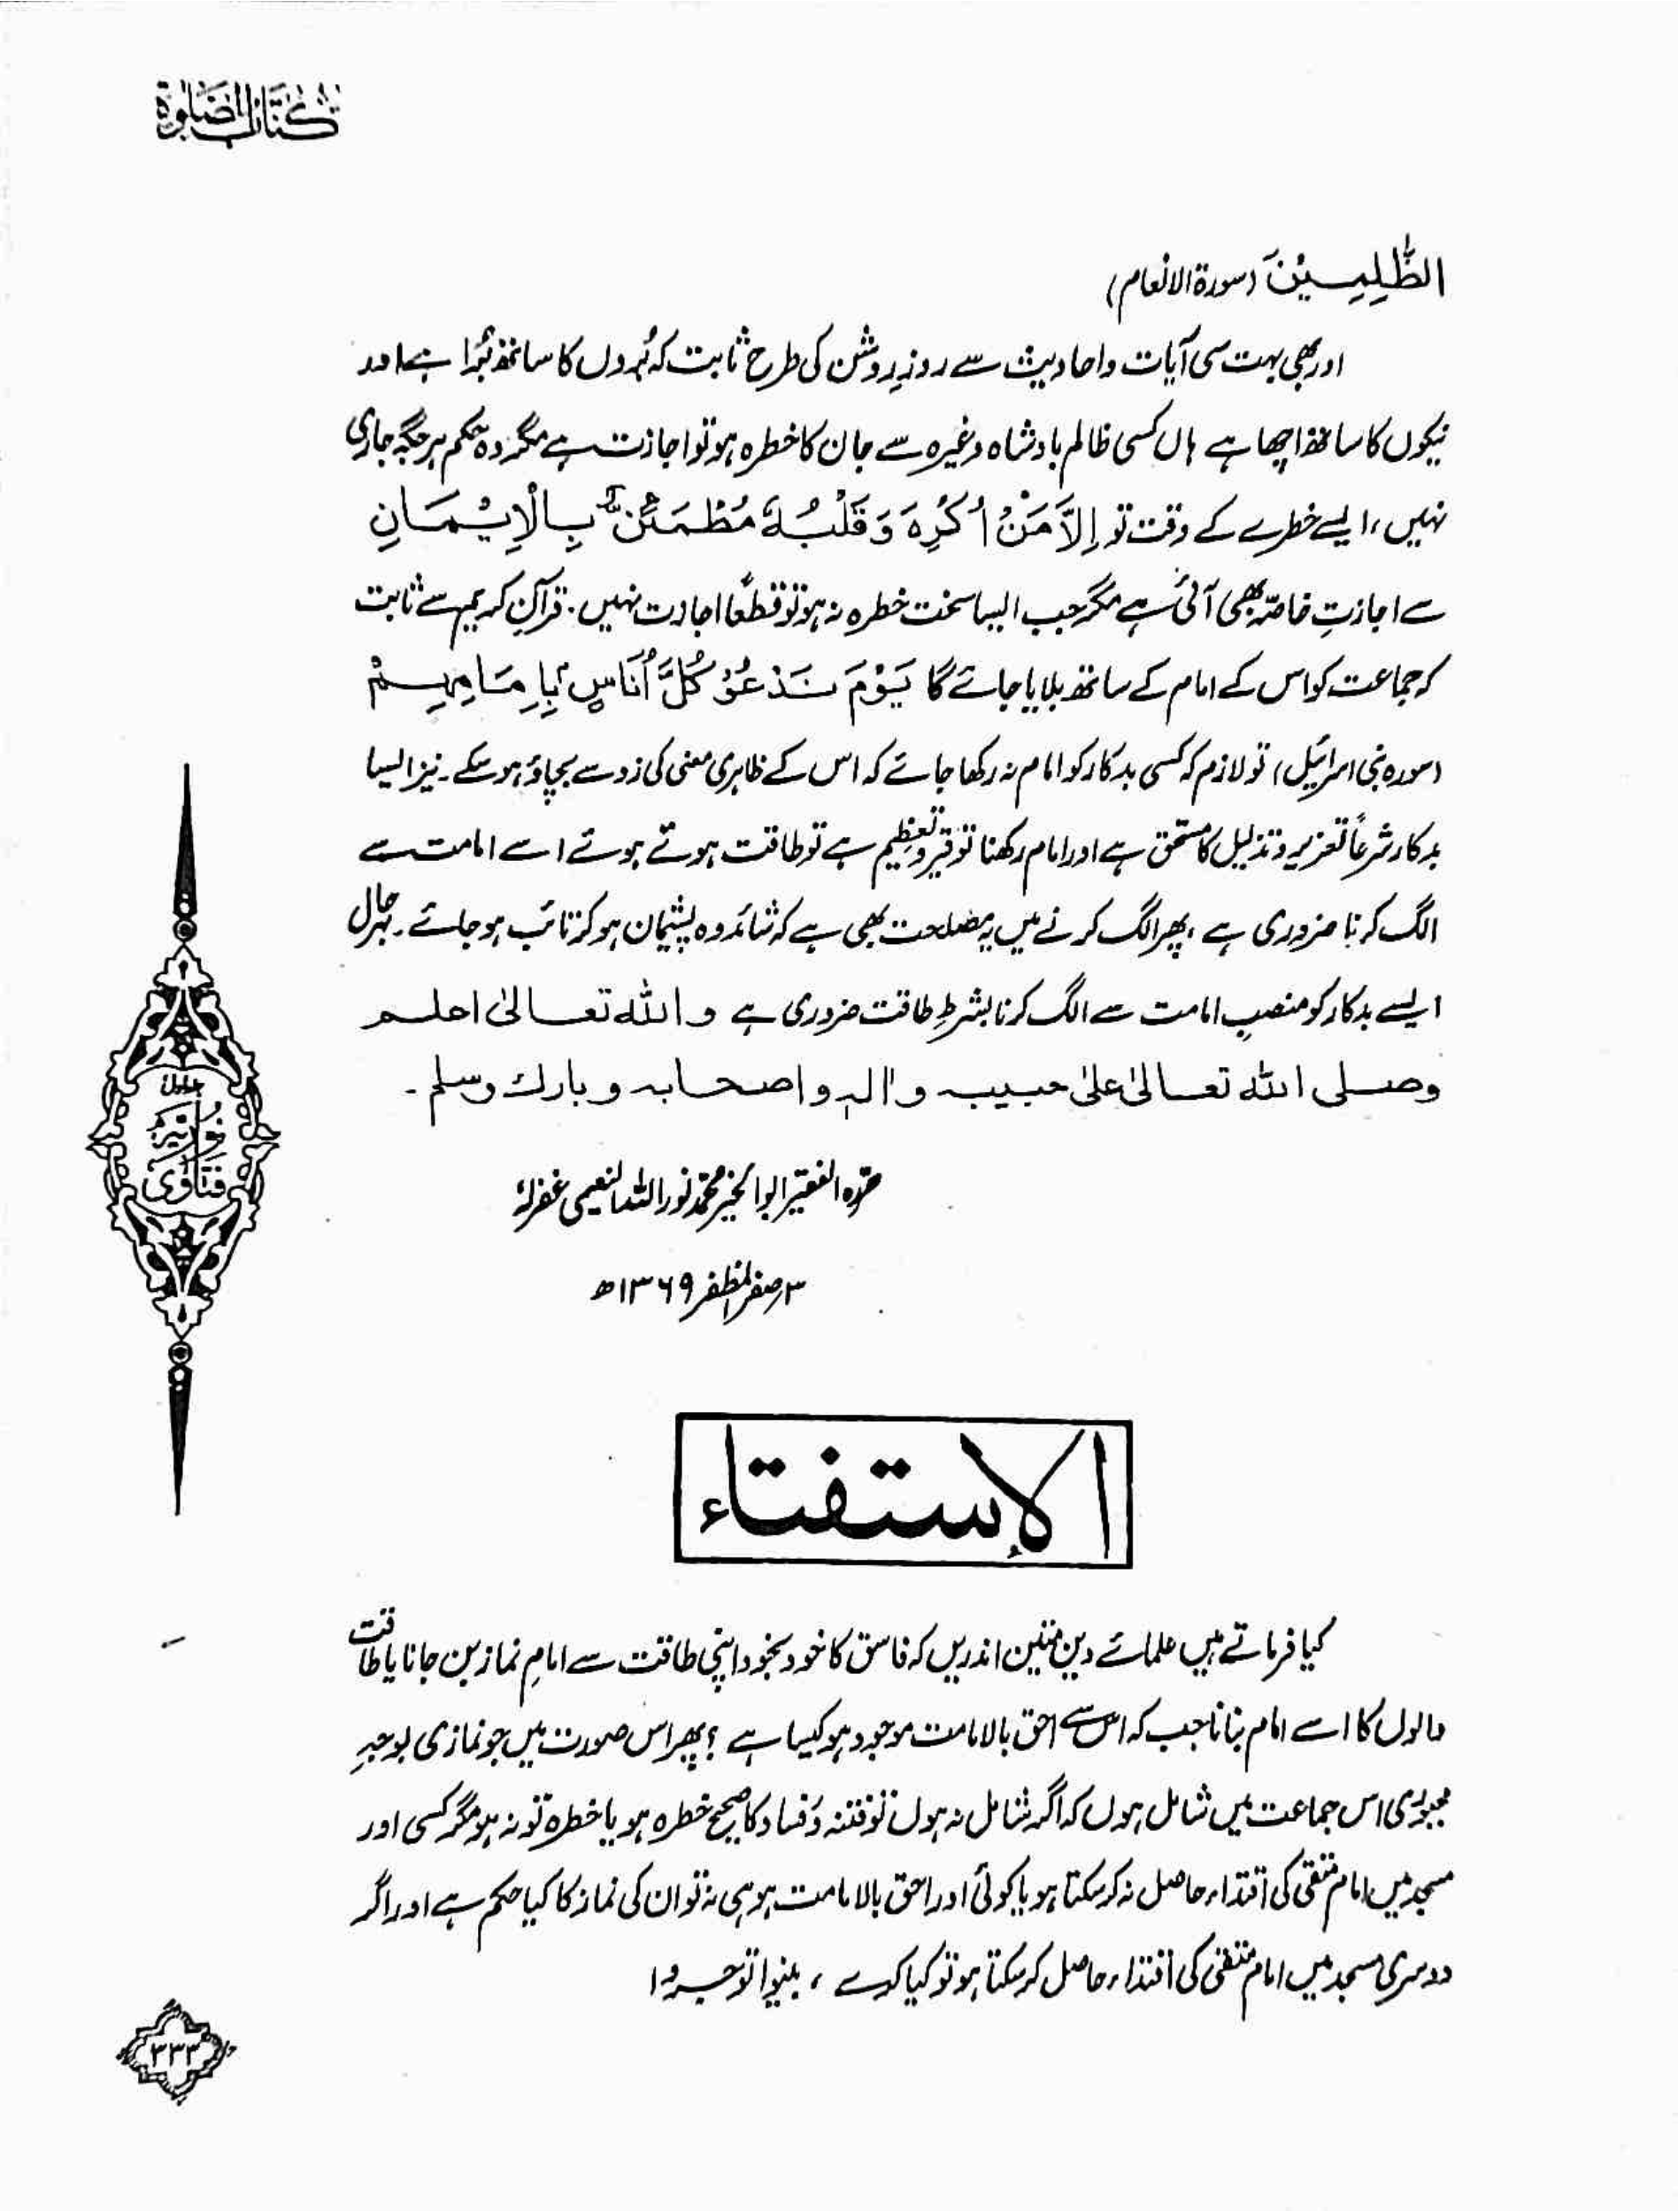 كتاب الصلوة
الظّٰلِمِيْنَ (سورۃ الانعام)
اور بھی بہت سی آیات و احادیث سے روزِ روشن کی طرح ثابت کہ بُروں کا ساتھ بُرا ہے اور
نیکوں کا ساتھ اچھا ہے ہاں کسی ظالم بادشاہ وغیرہ سے جان کا خطرہ ہو تو اجازت ہے مگر وہ حکم ہر جگہ جاری
نہیں، ایسے خطرے کے وقت تو اِلَّا مَنْ اُكْرِهَ وَقَلْبُهٗ مُطْمَئِنٌّۢ بِالْاِيْمَانِ
سے اجازتِ خاصّہ بھی آئی ہے مگر جب ایسا سخت خطرہ نہ ہو تو قطعًا اجازت نہیں۔ قرآنِ کریم سے ثابت
کہ جماعت کو اس کے امام کے ساتھ بلایا جائے گا يَوْمَ نَدْعُوْ كُلَّ اُنَاسٍۭ بِاِمَامِهِمْ
(سورہ بنی اسرائیل) تو لازم کہ کسی بدکار کو امام نہ رکھا جائے کہ اس کے ظاہری معنی کی زد سے بچاؤ ہو سکے۔ نیز ایسا
بدکار شرعاً تعزیر و تذلیل کا مستحق ہے اور امام رکھنا توقیر و تعظیم ہے تو طاقت ہوتے ہوئے اسے امامت سے
الگ کرنا ضروری ہے، پھر الگ کرنے میں یہ مصلحت بھی ہے کہ شائد وہ پشیمان ہو کر تائب ہو جائے۔ بہرحال
ایسے بدکار کو منصبِ امامت سے الگ کرنا بشرطِ طاقت ضروری ہے واللہ تعالیٰ اعلم
وصلی اللہ تعالیٰ علیٰ حبیبہ واٰلہ واصحابہ وبارك وسلم۔
حرّرہ الفقیر ابوالخیر محمد نور اللہ النعیمی غفرلہٗ
۳ صفر المظفر ۱۳۶۹ھ
جلد اول
نوریّہ
فتاوٰی
الإستفتاء
کیا فرماتے ہیں علمائے دین متین اندریں کہ فاسق کا خود بخود اپنی طاقت سے امامِ نماز بن جانا یا طاقت
والوں کا اسے امام بنانا جب کہ اس سے احق بالامامت موجود ہو کیسا ہے؟ پھر اس صورت میں جو نمازی بوجہِ
مجبوری اس جماعت میں شامل ہوں کہ اگر شامل نہ ہوں تو فتنہ و فساد کا صحیح خطرہ ہو یا خطرہ تو نہ ہو مگر کسی اور
مسجد میں امام متقی کی اقتداء حاصل نہ کر سکتا ہو یا کوئی اور احق بالامامت ہو ہی نہ تو ان کی نماز کا کیا حکم ہے اور اگر
دوسری مسجد میں امام متقی کی اقتداء حاصل کر سکتا ہو تو کیا کرے، بینوا توجروا
۳۳۳